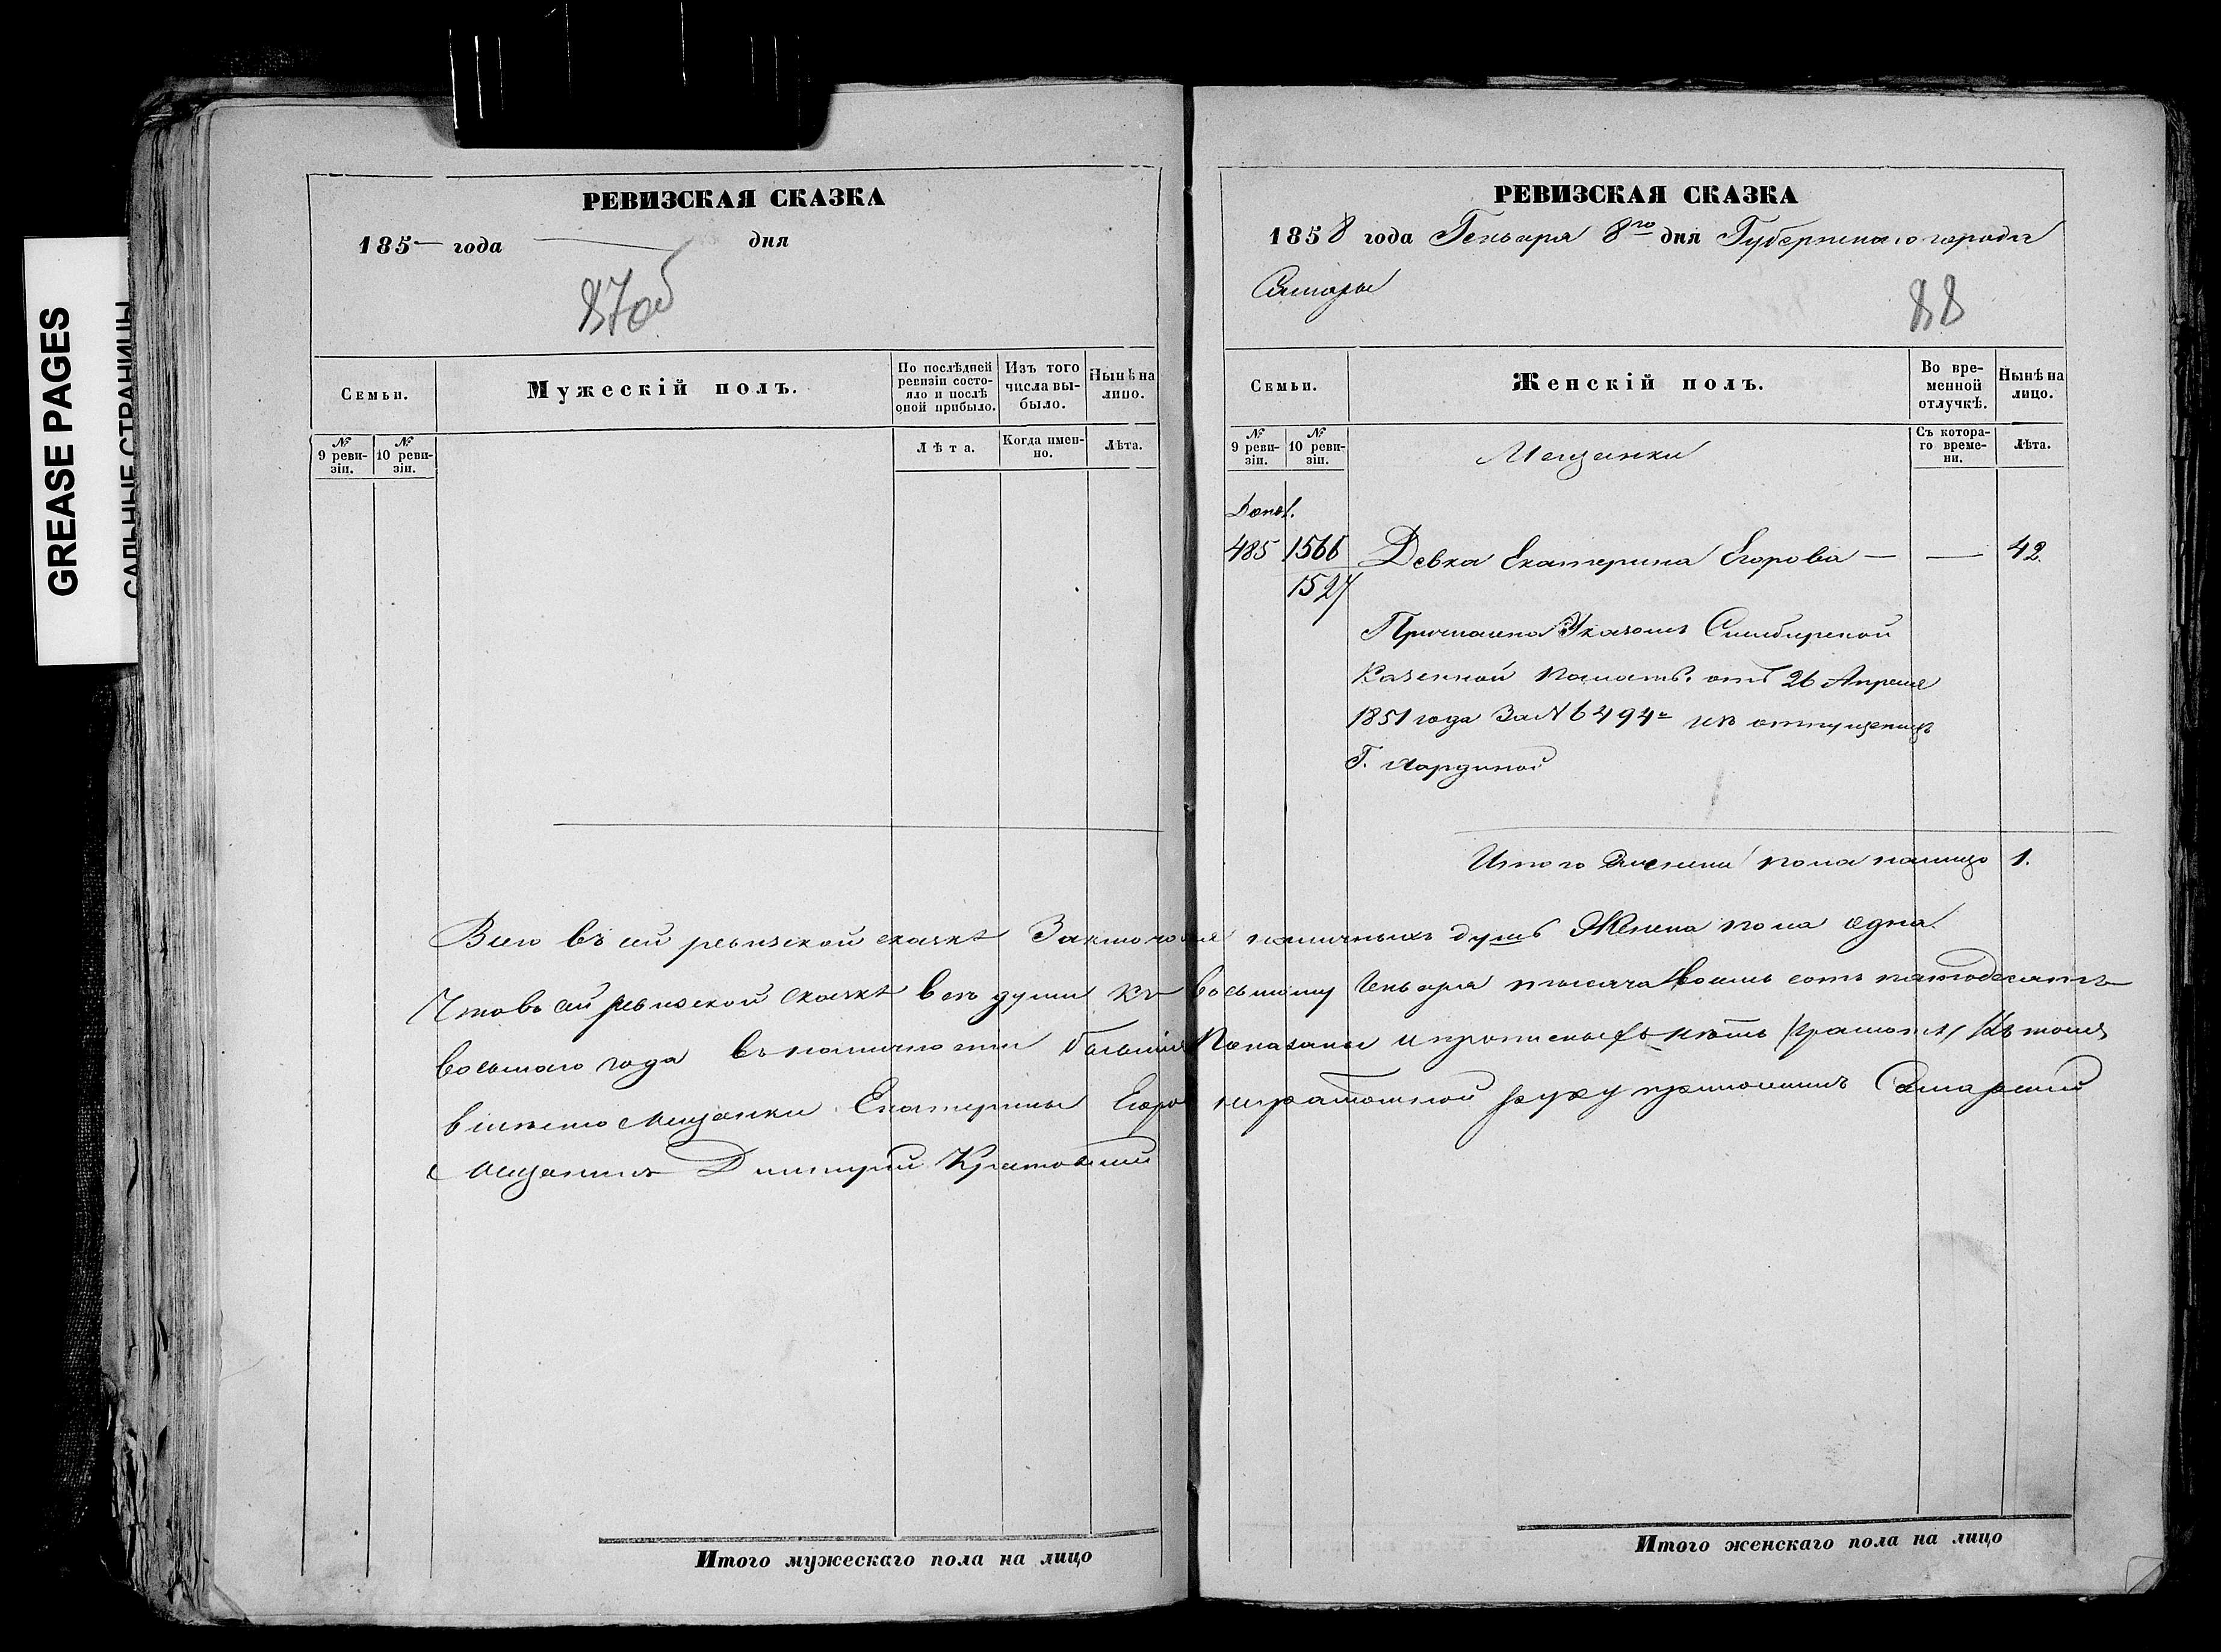 GREASE PAGES
САЛЬНЫЕ СТРАНИЦЫ
РЕВИЗСКАЯ СКАЗКА
185— года — дня
87об
Семьи.
Мужескій полъ.
По послѣдней ревизіи состояло и послѣ оной прибыло.
Изъ того числа выбыло.
Нынѣ на лицо.
№ 9 ревизіи.
№ 10 ревизіи.
Лѣта.
Когда именно.
Лѣта.
РЕВИЗСКАЯ СКАЗКА
1858 года Генваря 8го дня Губернскаго города
Самары
88
Семьи.
Женскій полъ.
Во временной отлучкѣ.
Нынѣ на лицо.
№ 9 ревизіи.
№ 10 ревизіи.
Мещанки
Съ котораго времени.
Лѣта.
Допол.
485 1566 Девка Екатерина Егорова — — 42
1527
Причислена Указомъ Симбирской
Казенной Палаты отъ 26 Апреля
1851 года За № 6494 изъ отпущенницъ
Г.
Итого женска пола налицо 1.
Всего въ сей ревизской сказкѣ Заключается наличныхъ душъ Женска пола одна.
Что въ сей ревизской сказкѣ все души къ восьмому Генваря тысяча восемь сотъ пятдесятъ
восьмаго года въ наличности бывшія Показаны и прописныхъ нѣтъ
мещанки Екатерины Егоро неграмотной руку приложилъ Самарский
Мещанинъ Димитрий
Итого мужескаго пола на лицо
Итого женскаго пола на лицо